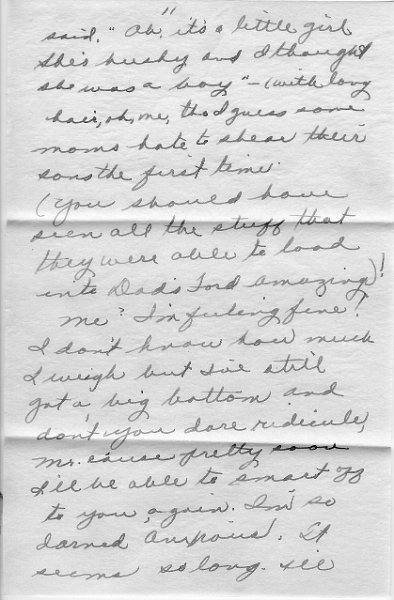 "
said. "Oh, it's a little girl
she's husky and I thought
she was a boy" - (with long
hair, oh, me, tho I guess some
moms hate to shear their
sons the first time.
(You should have
seen all the stuff that
they were able to load
into Dad's Ford amazing)!
Me? I'm feeling fine!
I don't know how much
I weigh but I've still
got a big bottom and
don't you dare ridicule,
Mr. cause pretty soon
I'll be able to smart off
to you again. I'm so
darned anxious. It
seems so long. We